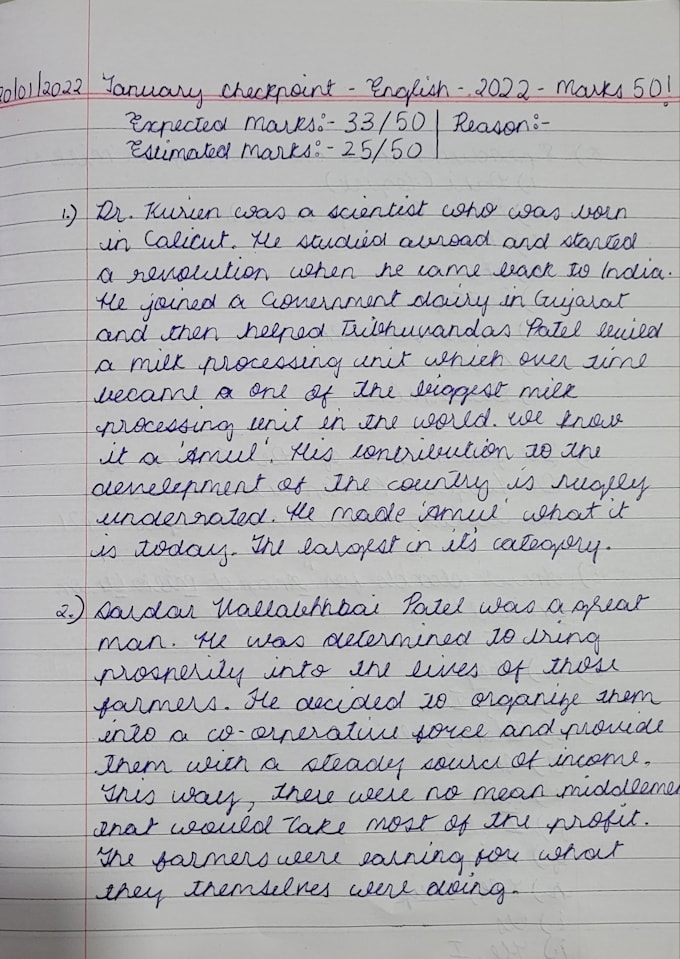 20/01/2022 January checkpoint - English - 2022 - Marks 50!
Expected marks:- 33/50 | Reason:-
Estimated marks:- 25/50
1.) Dr. Kurien was a scientist who was born
in Calicut. He studied abroad and started
a revolution when he came back to India.
He joined a Government dairy in Gujarat
and then helped Tribhuvandas Patel build
a milk processing unit which over time
became a one of the biggest milk
processing unit in the world. We know
it a 'Amul'. His contribution to the
development of the country is hugely
underrated. He made 'Amul' what it
is today. The largest in it's category.
2.) Sardar Vallabhbhai Patel was a great
man. He was determined to bring
prosperity into the lives of those
farmers. He decided to organize them
into a co-orperative force and provide
them with a steady source of income.
This way, there were no mean middlemen
that would take most of the profit.
The farmers were earning for what
they themselves were doing.